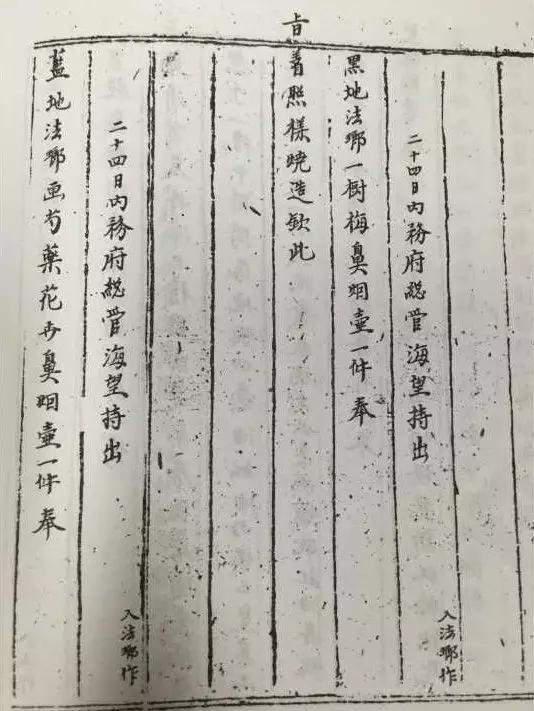 入法瑯作
二十四日内務府緫管海望持出
黑地法瑯一樹梅鼻烟壺一件奉
旨着照樣燒造欽此
入法瑯作
二十四日内務府緫管海望持出
藍地法瑯画芍藥花卉鼻烟壺一件奉